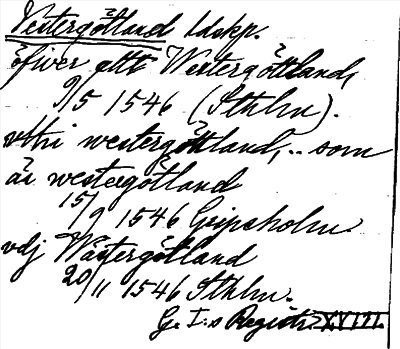 Vestergötland ldskp.
öfwer alt Westergöttland,
9/5 1546 (Sthlm).
vthi westergöttland, .. som
är westergötland
15/9 1546 Gripsholm.
vdj Wästergötland
20/11 1546 Sthlm.
G. I:s Registr. XVIII.